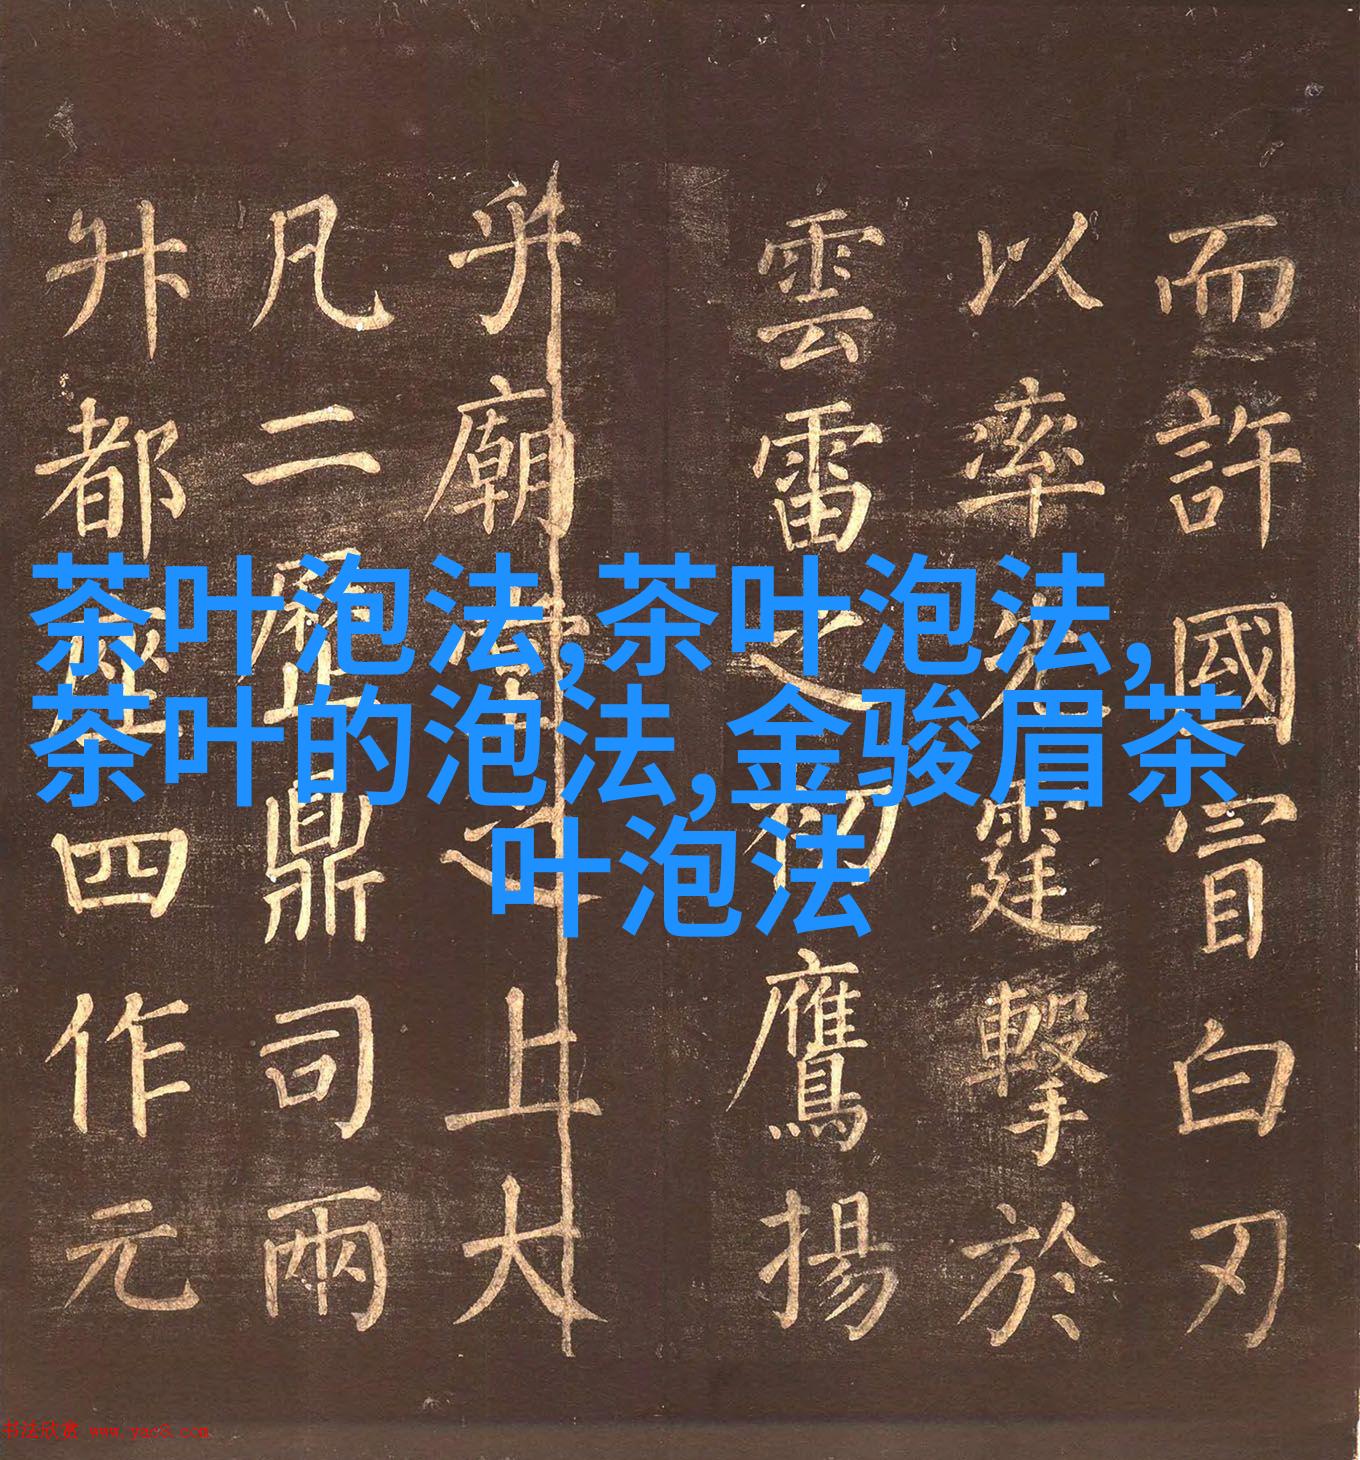 而許國冐白刃
以率先霆擊於
雲雷之初鷹揚
乎廟堂之上大
凡二歷鼎司兩
升都四作元
茶叶泡法,茶叶泡法,
茶叶的泡法,金骏眉茶
叶泡法
书法欣赏 www.yac8.com